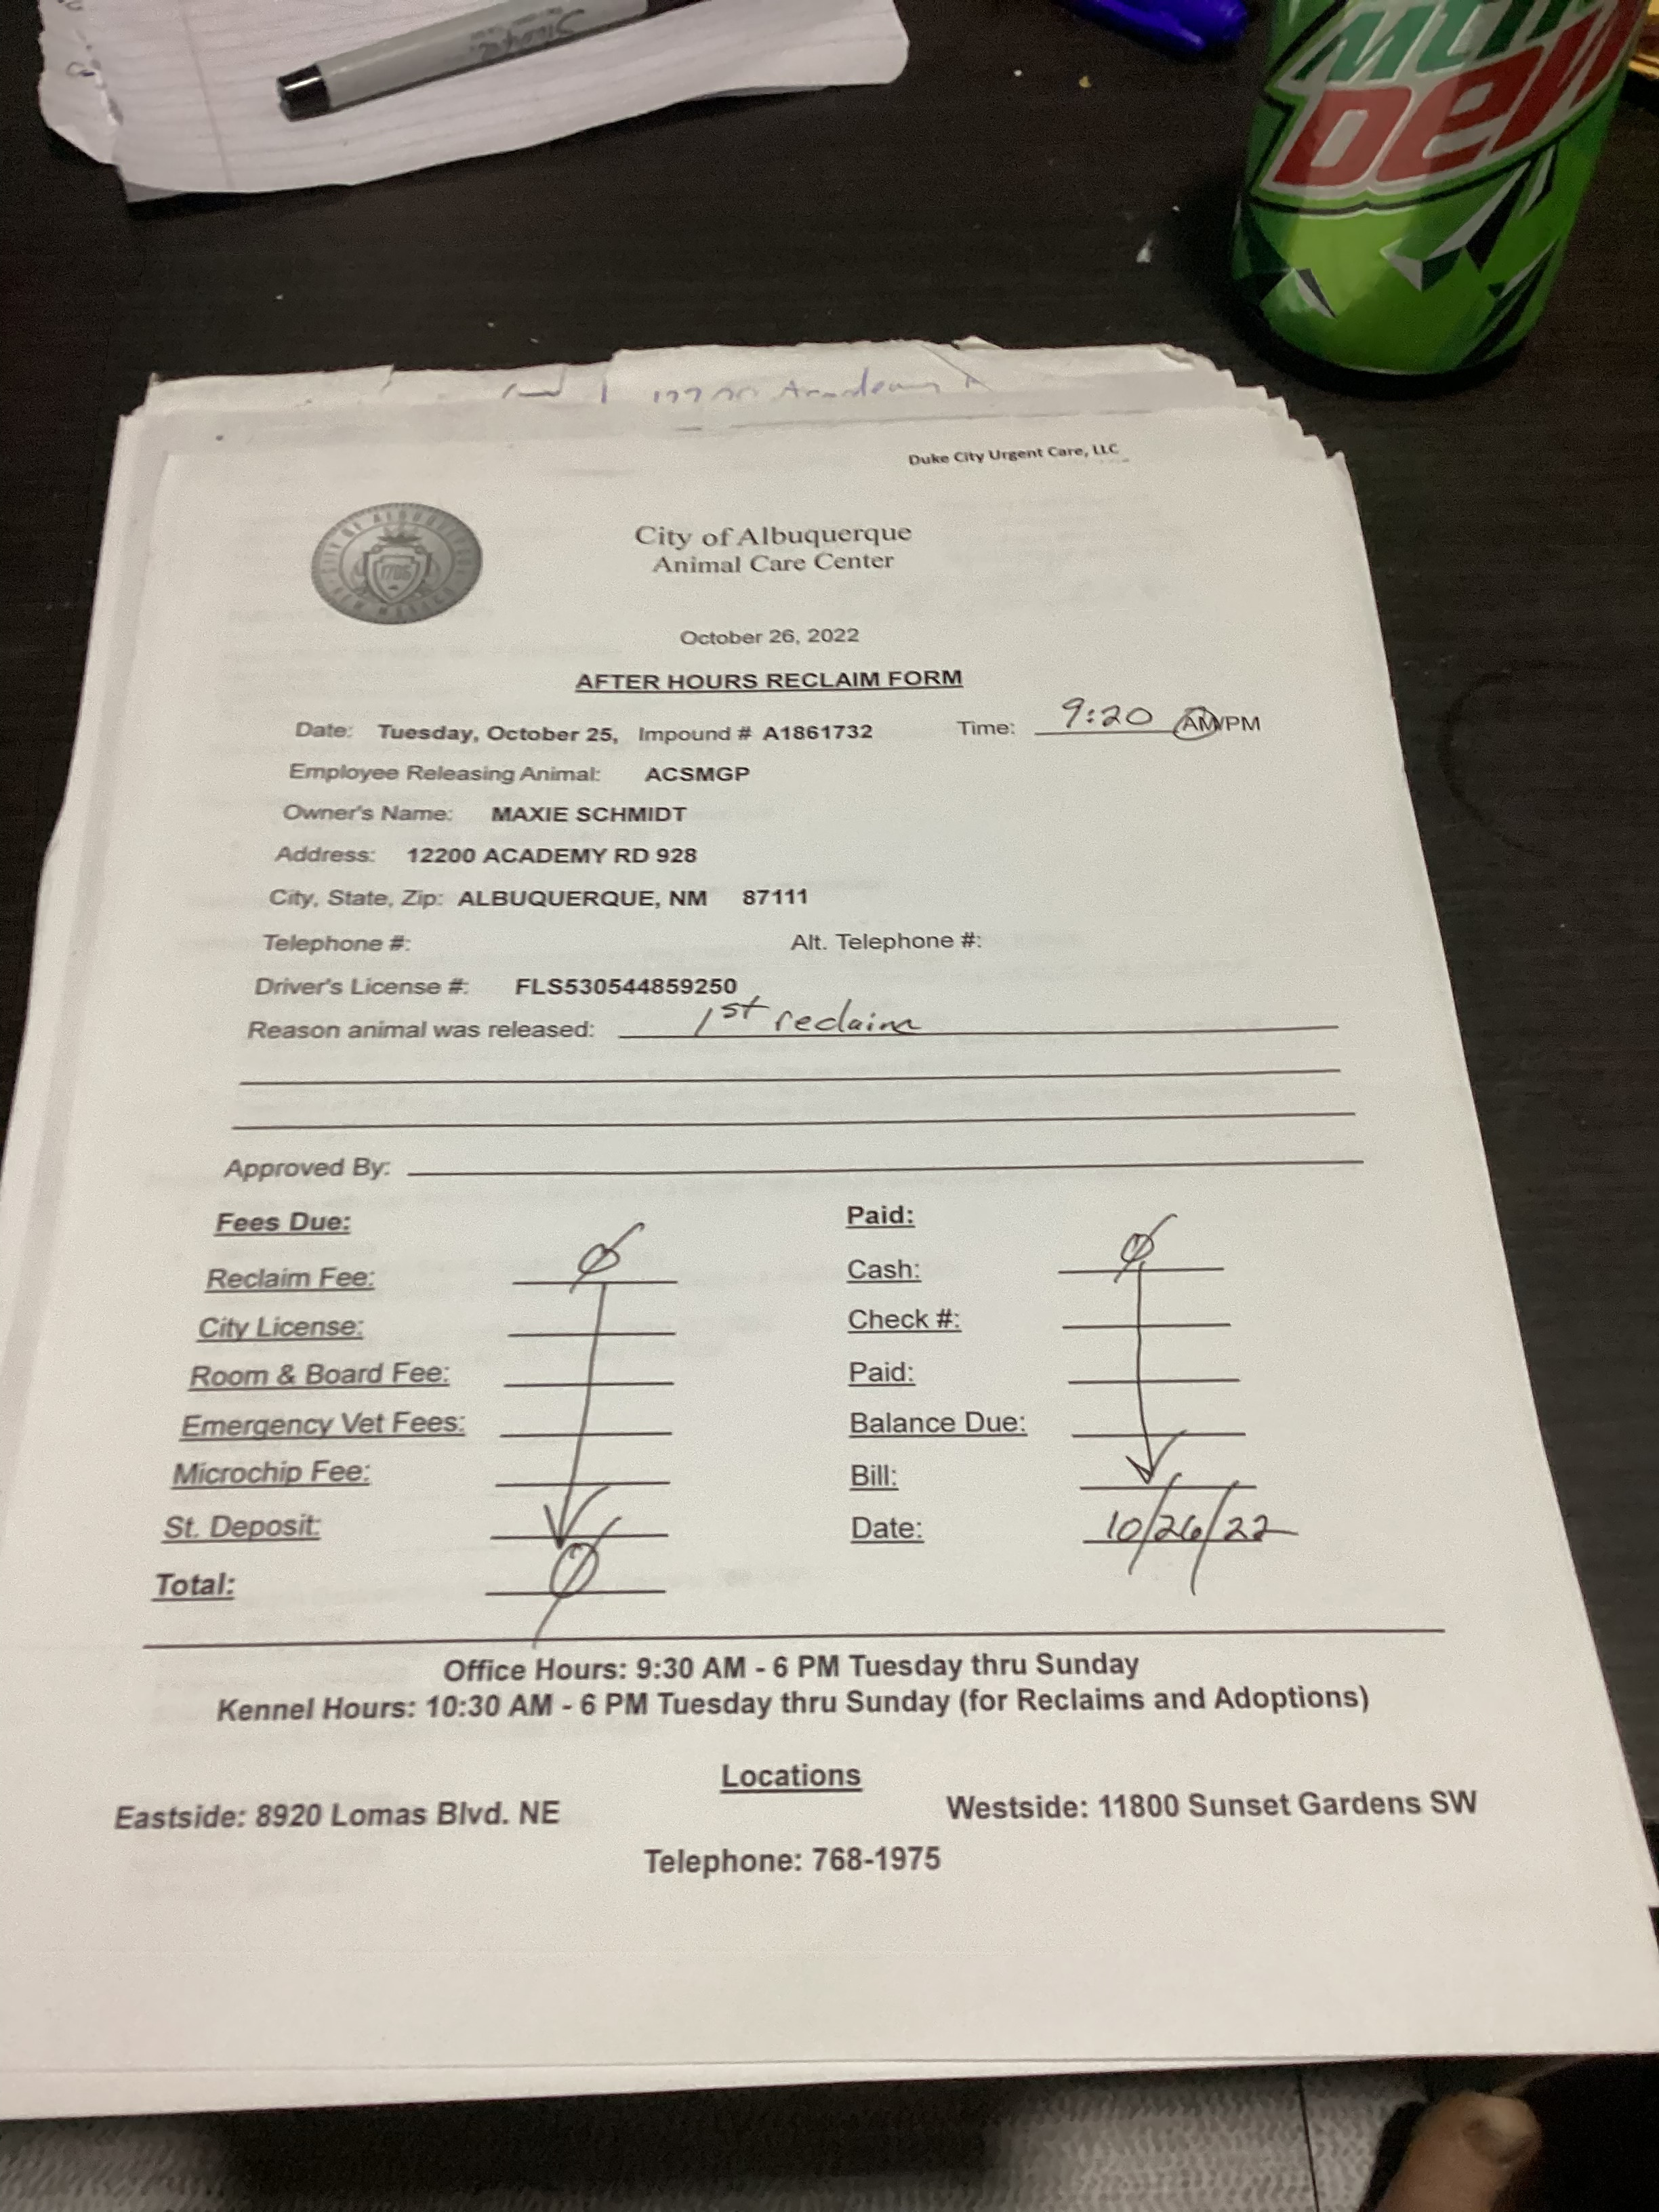 Sharpie
Mtn
Dew
12200 Academy
Duke City Urgent Care, LLC
CITY OF ALBUQUERQUE
1706
NEW MEXICO
City of Albuquerque
Animal Care Center
October 26, 2022
AFTER HOURS RECLAIM FORM
Date: Tuesday, October 25, Impound # A1861732 Time: 9:20 AM/PM
Employee Releasing Animal: ACSMGP
Owner's Name: MAXIE SCHMIDT
Address: 12200 ACADEMY RD 928
City, State, Zip: ALBUQUERQUE, NM 87111
Telephone #: Alt. Telephone #:
Driver's License #: FLS530544859250
Reason animal was released: 1st reclaim
Approved By:
Fees Due: Paid:
Reclaim Fee: Ø Cash: Ø
City License: Check #:
Room & Board Fee: Paid:
Emergency Vet Fees: Balance Due:
Microchip Fee: Bill:
St. Deposit: Date: 10/26/22
Total: Ø
Office Hours: 9:30 AM - 6 PM Tuesday thru Sunday
Kennel Hours: 10:30 AM - 6 PM Tuesday thru Sunday (for Reclaims and Adoptions)
Locations
Eastside: 8920 Lomas Blvd. NE Westside: 11800 Sunset Gardens SW
Telephone: 768-1975